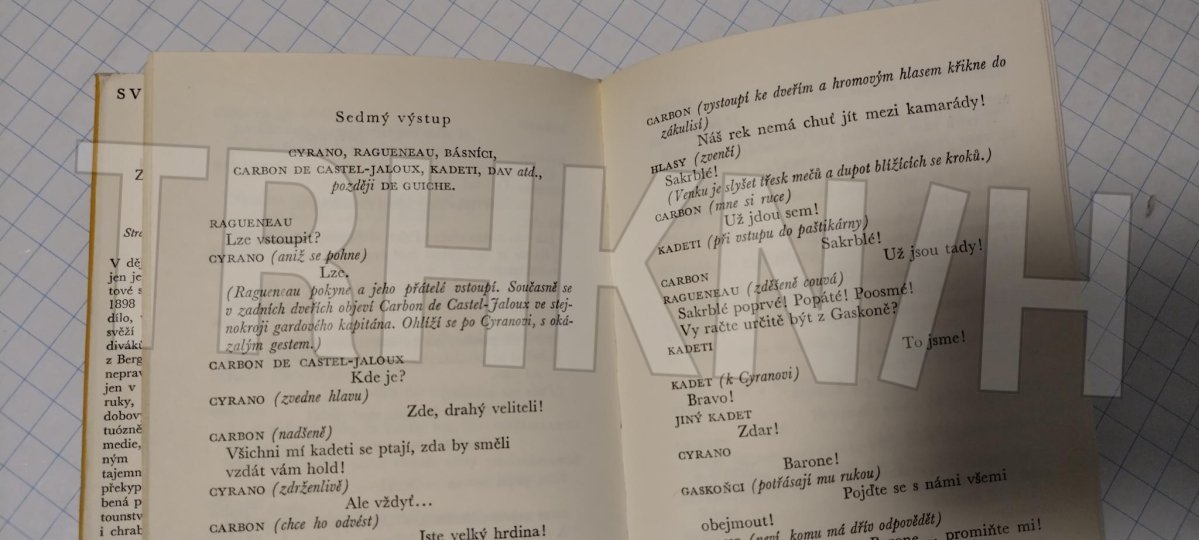 SV
Z
Stra
V děj
jen je
tové s
1898
dílo,
svěží
diváků
z Berg
neprav
jen v
ruky,
dobový
tuózně
medie,
ným
tajemn
překyp
bená p
tounstv
i chrab
Sedmý výstup
CYRANO, RAGUENEAU, BÁSNÍCI,
CARBON DE CASTEL-JALOUX, KADETI, DAV atd.,
později DE GUICHE.
RAGUENEAU
Lze vstoupit?
CYRANO (aniž se pohne)
Lze.
(Ragueneau pokyne a jeho přátelé vstoupí. Současně se
v zadních dveřích objeví Carbon de Castel-Jaloux ve stej-
nokroji gardového kapitána. Ohlíží se po Cyranovi, s oká-
zalým gestem.)
CARBON DE CASTEL-JALOUX
Kde je?
CYRANO (zvedne hlavu)
Zde, drahý veliteli!
CARBON (nadšeně)
Všichni mí kadeti se ptají, zda by směli
vzdát vám hold!
CYRANO (zdrženlivě)
Ale vždyť...
CARBON (chce ho odvést)
Jste velký hrdina!
CARBON (vystoupí ke dveřím a hromovým hlasem křikne do
zákulisí)
Náš rek nemá chuť jít mezi kamarády!
HLASY (zvenčí)
Sakrblé!
(Venku je slyšet třesk mečů a dupot blížících se kroků.)
CARBON (mne si ruce)
Už jdou sem!
KADETI (při vstupu do paštikárny)
Sakrblé!
Už jsou tady!
CARBON
RAGUENEAU (zděšeně couvá)
Sakrblé poprvé! Popáté! Poosmé!
Vy račte určitě být z Gaskoně?
KADETI
To jsme!
KADET (k Cyranovi)
Bravo!
JINÝ KADET
Zdar!
CYRANO
Barone!
GASKOŇCI (potřásají mu rukou)
Pojďte se s námi všemi
obejmout!
(neví, komu má dřív odpovědět)
Barone... promiňte mi!
TRHKN/H